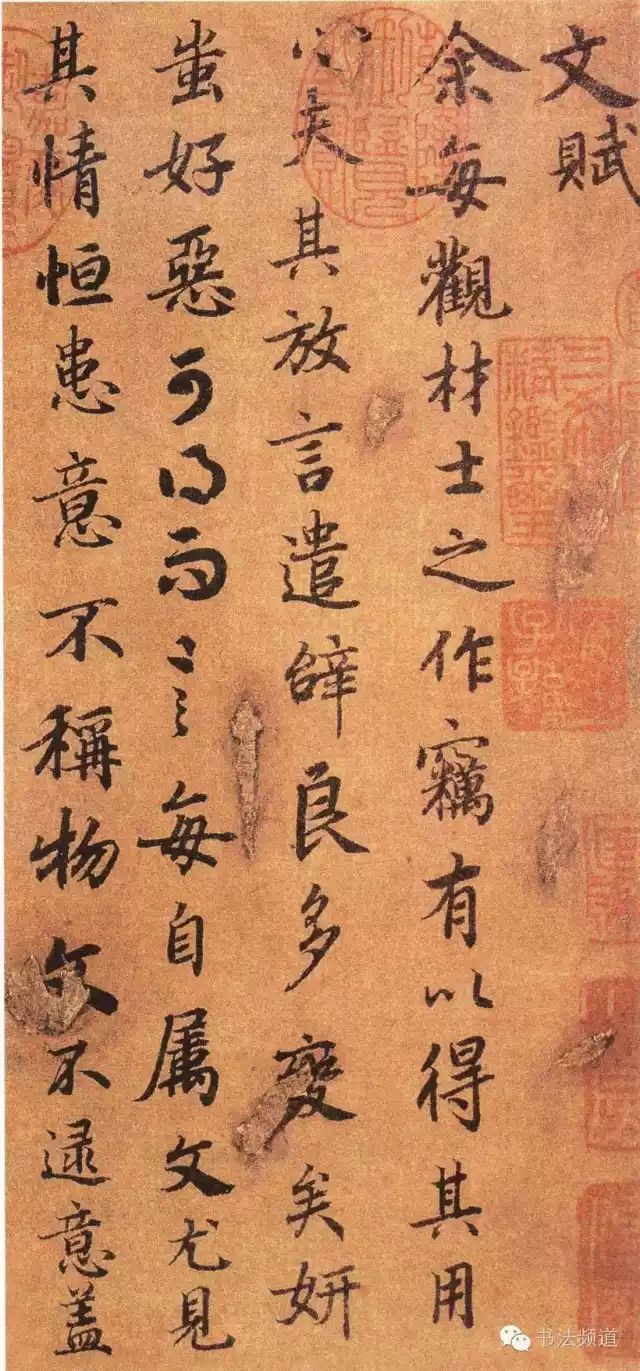 文賦
余每觀材士之作竊有以得其用
心矣其放言遣辭良多變矣妍
蚩好惡可得而言每自属文尤見
其情恒患意不稱物文不逮意盖
书法频道